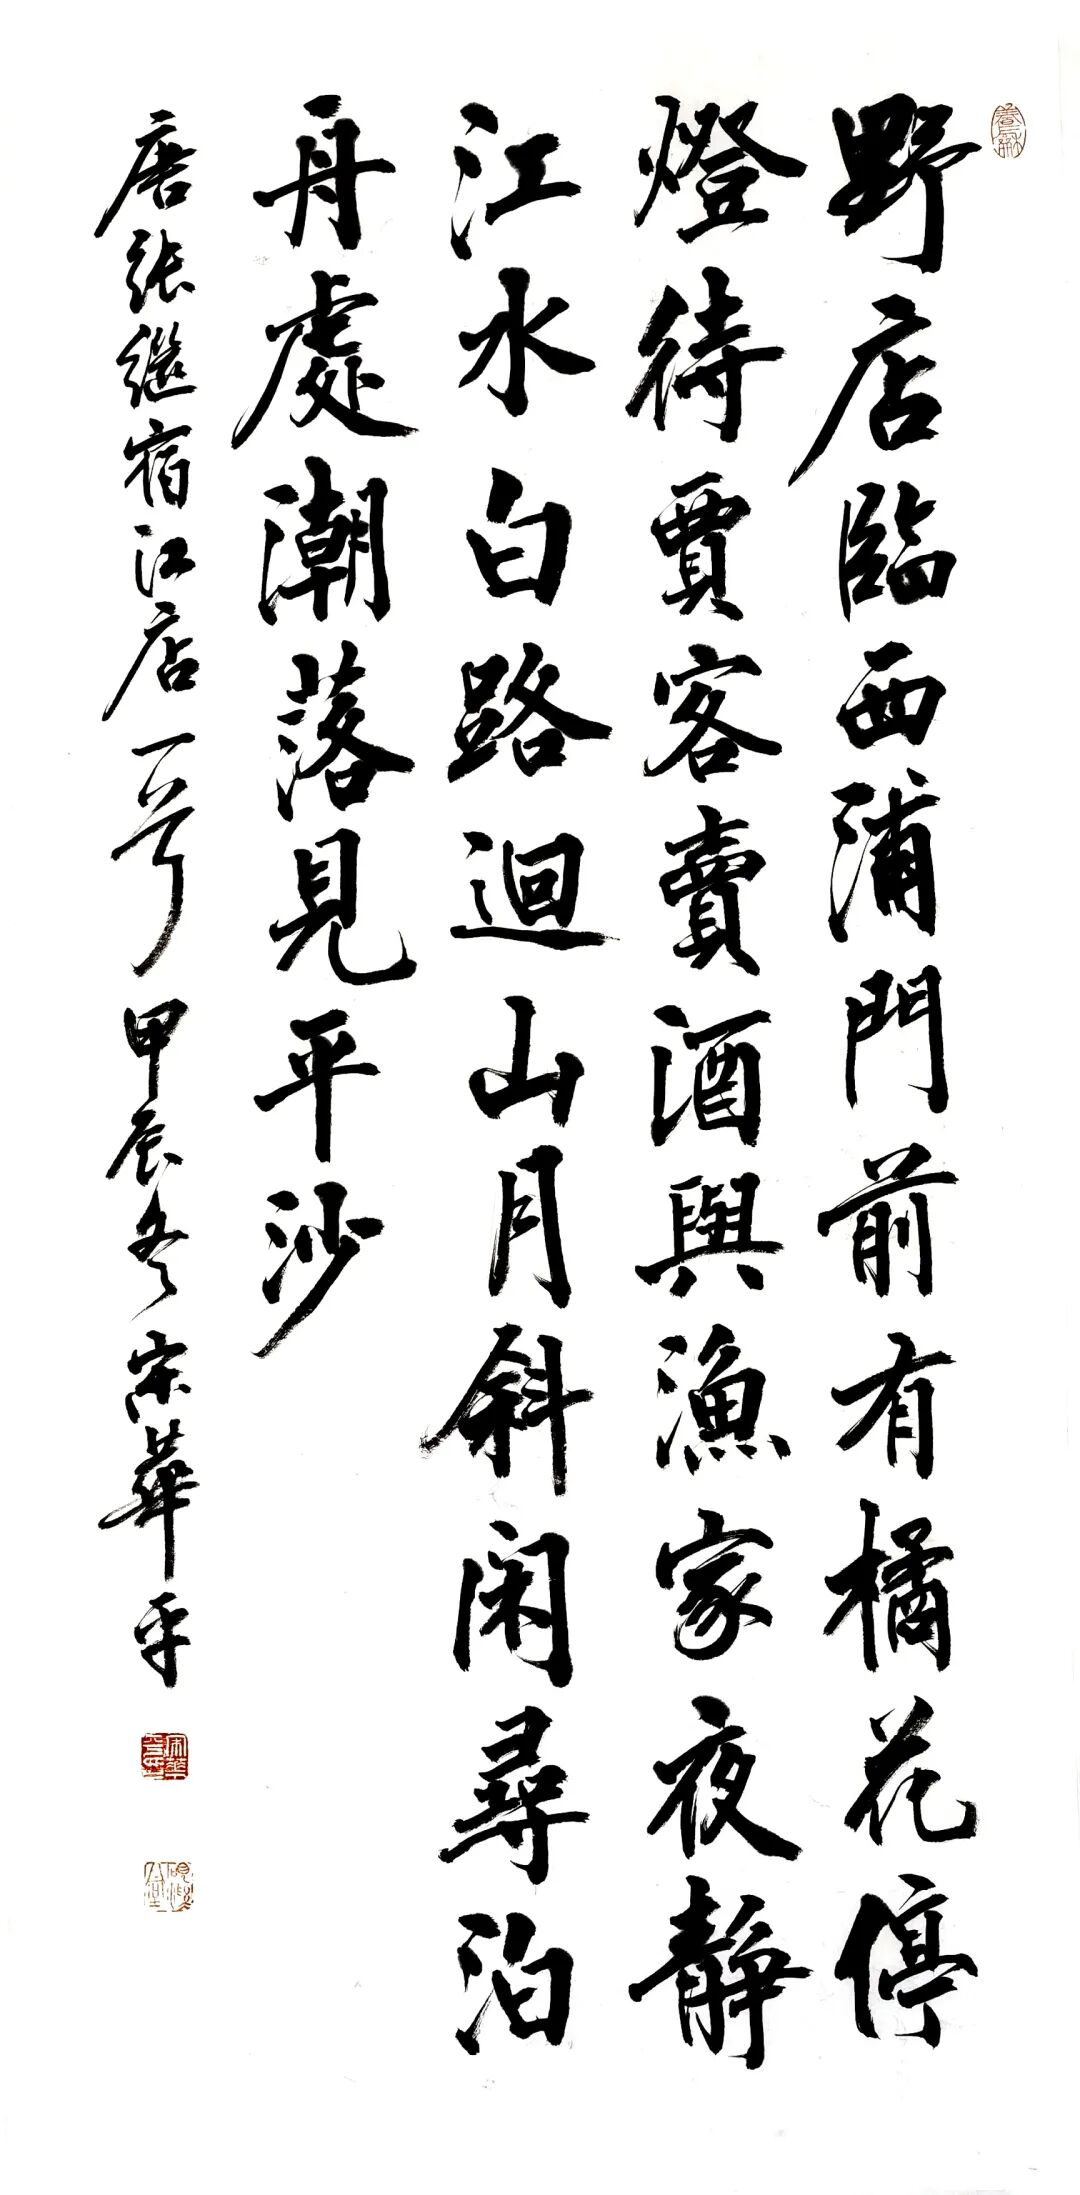 野店臨西浦門前有橘花停
燈待賈客賣酒與漁家夜靜
江水白路迴山月斜闲尋泊
舟處潮落見平沙
唐张继宿江店一首甲辰冬宋華平